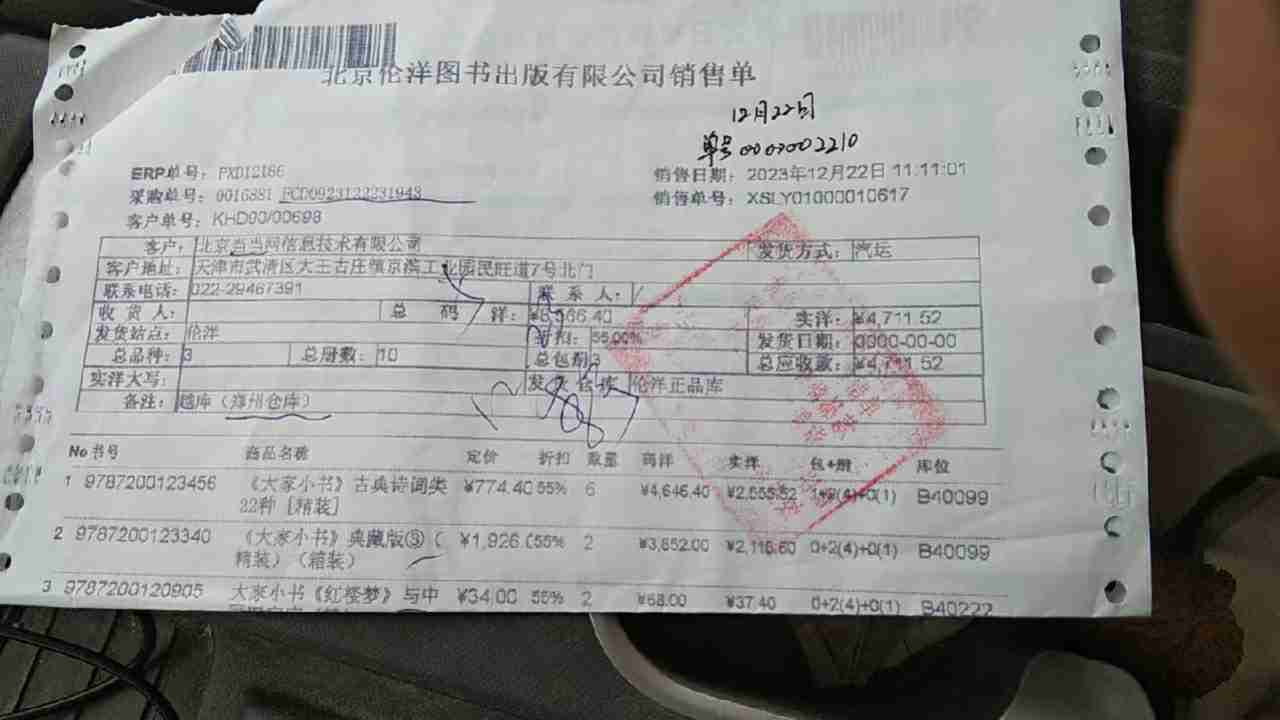 北京伦洋图书出版有限公司销售单
12月22日
单号0000002210
ERP单号: PXD12186 销售日期: 2023年12月22日 11:11:01
采购单号: 0016881 PCD0923122231943 销售单号: XSLY01000010617
客户单号: KHD00/00698
客户: 北京当当网信息技术有限公司 发货方式: 汽运
客户地址: 天津市武清区大王古庄镇京滨工业园民旺道7号北门
联系电话: 022-29467391 联系人: /
收货人: 总码洋: 实洋: ¥4,711.52
发货站点: 伦洋 折扣: 55.00% 发货日期: 0000-00-00
总品种: 3 总册数: 10 总包册 3 总应收款: ¥4,711.52
实洋大写: 伦洋正品库
备注: 越库(郑州仓库)
No 书号 商品名称 定价 折扣 数量 码洋 实洋 包+册 库位
1 9787200123456 《大家小书》古典诗词类 ¥774.40 55% 6 ¥4,646.40 ¥2,555.52 B40099
22种 [精装]
2 9787200123340 《大家小书》典藏版③( ¥1,926.0 55% 2 ¥3,852.00 ¥2,118.60 0+2(4)+0(1) B40099
精装)(箱装)
3 9787200120905 大家小书《红楼梦》与中 ¥34.00 55% 2 ¥68.00 ¥37.40 0+2(4)+0(1) B40222